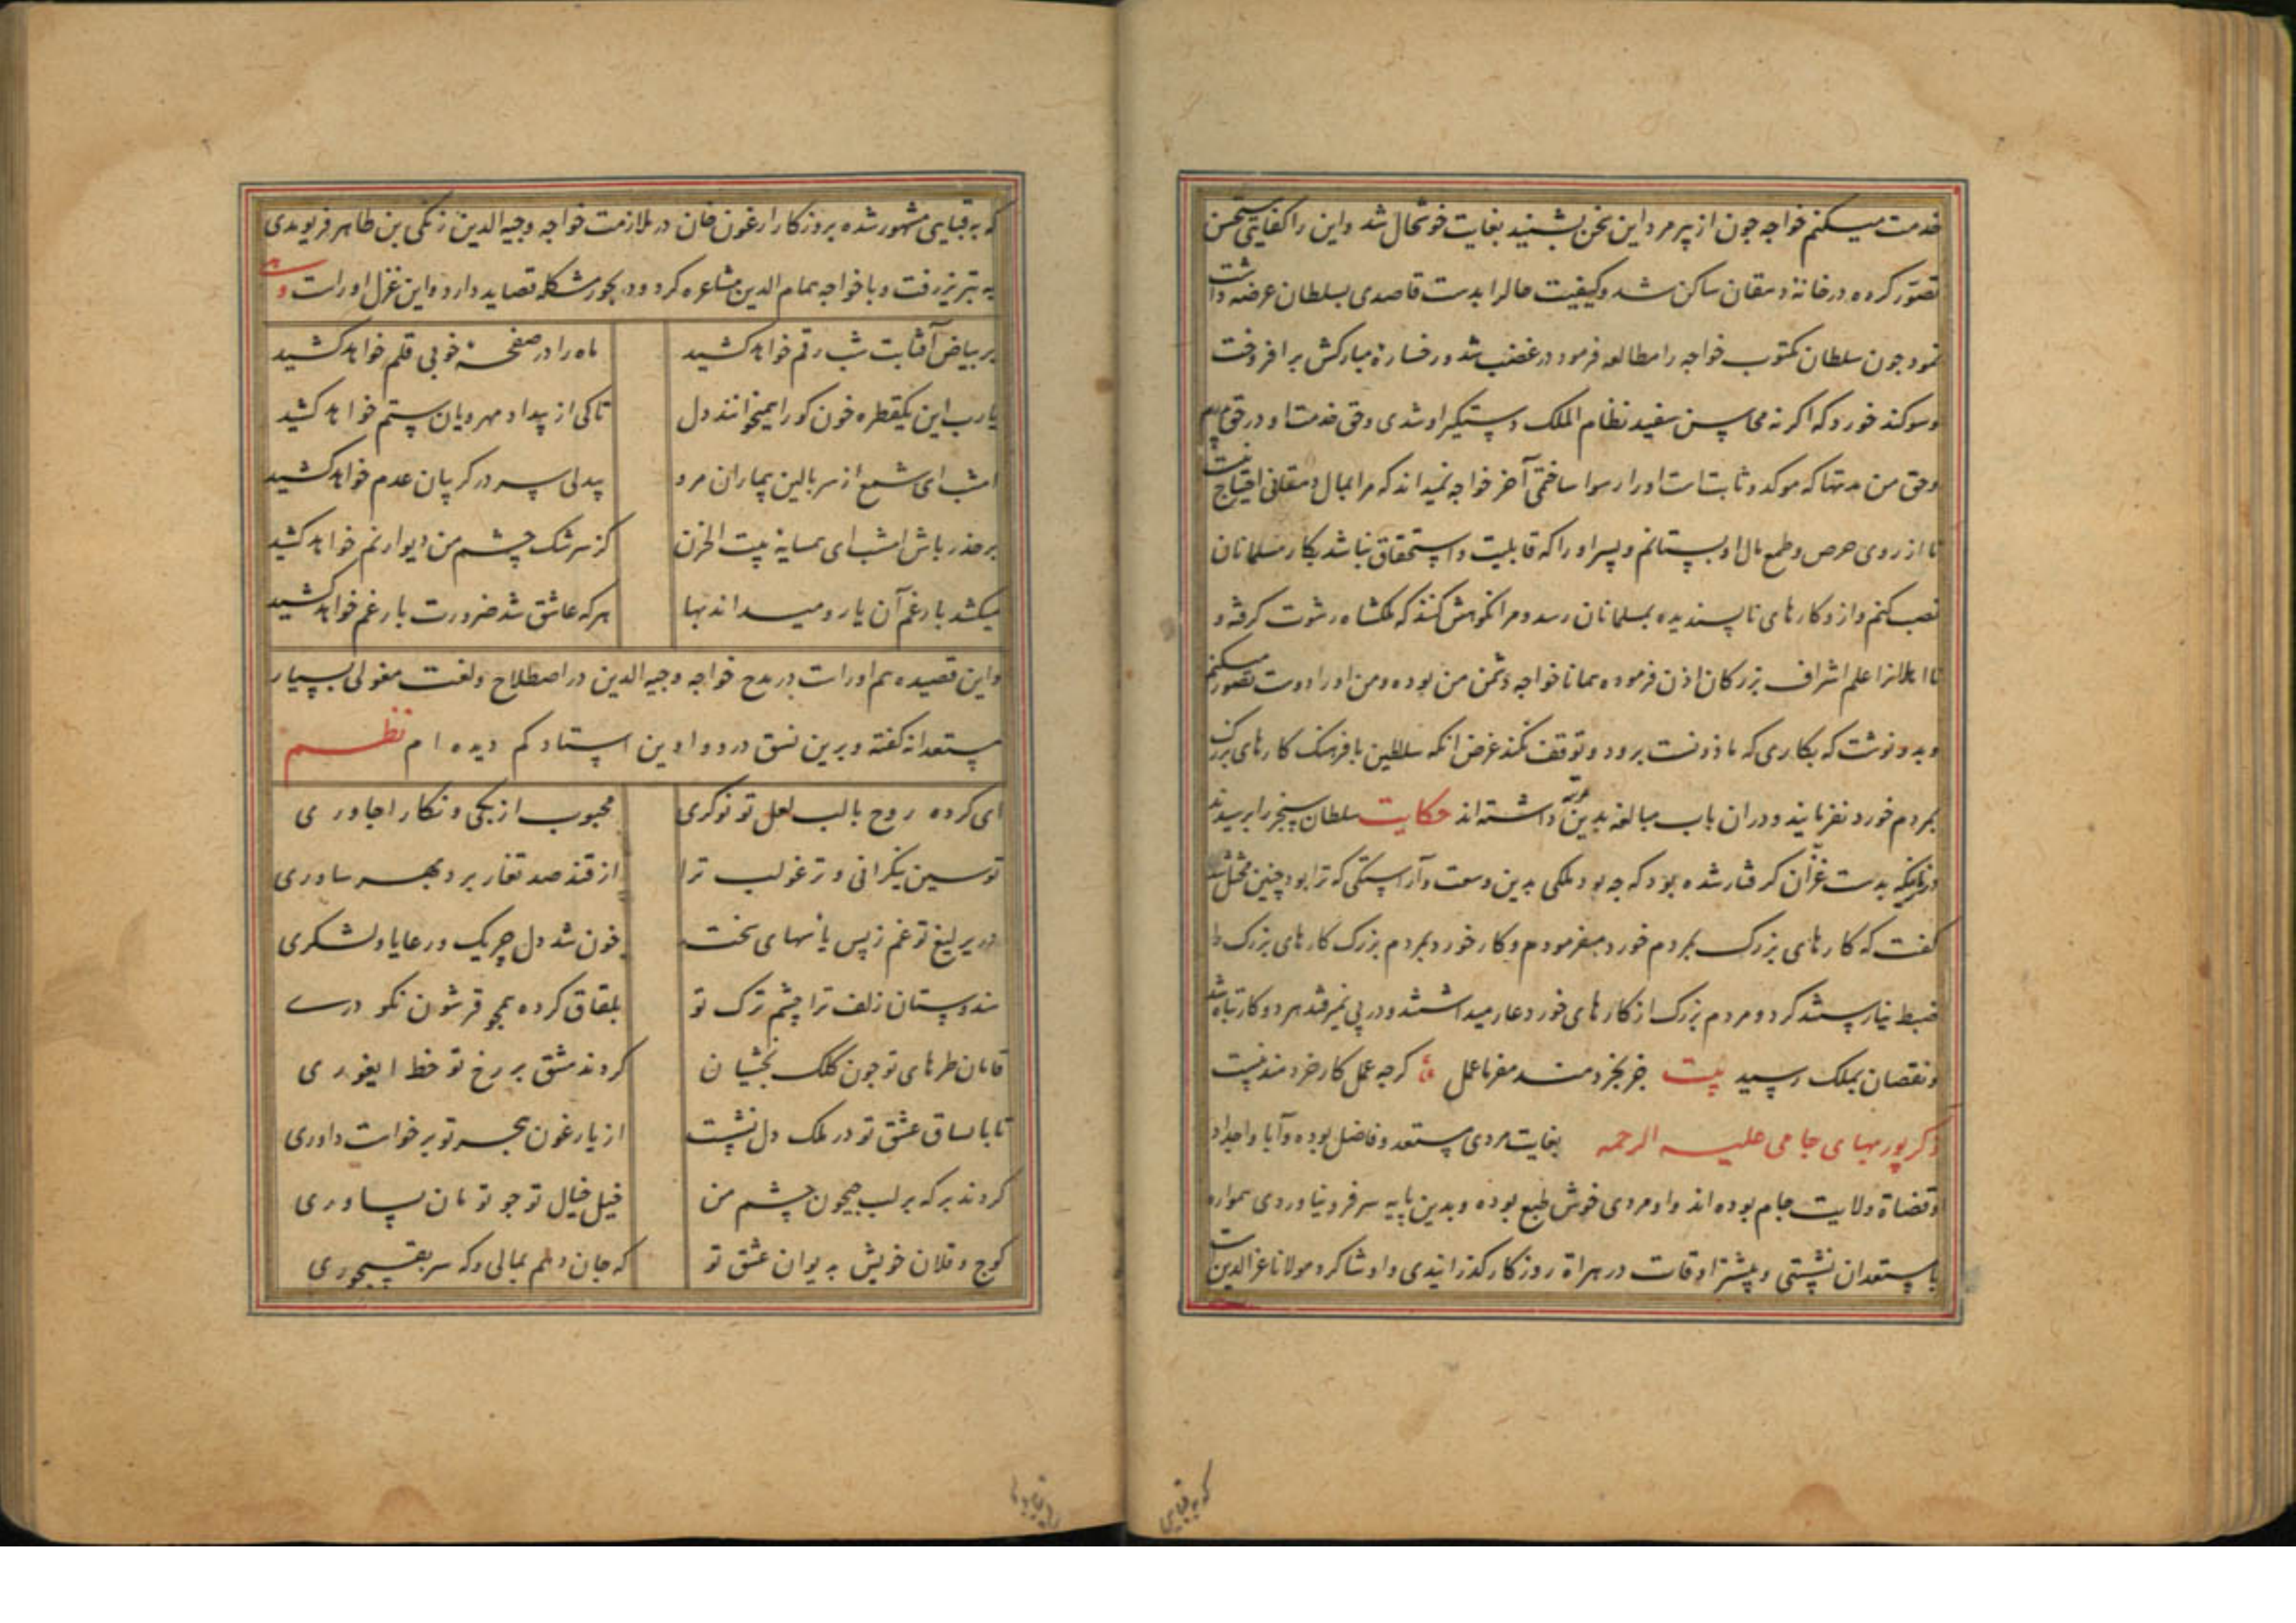 خدمت میکنم خواجه چون از پیر مرد این سخن بشنید بغایت خوشحال شد و این را کفایتی مستحسن
تصوّر کرده در خانهٔ دهقان ساکن شد و کیفیت حال را بدست قاصدی بسلطان عرضه داشت
نمود چون سلطان مکتوب خواجه را مطالعه فرمود در غضب شد و رخسارهٔ مبارکش بر افروخت
و سوکند خورد که اکر نه محاسن سفید نظام الملک دستکیر او شدی و حق خدمت او در حق پدرم
و حق من مدتها که موکد و ثابت است او را رسوا ساختمی آخر خواجه نمیداند که مرا بمال دهقانی احتیاج نیست
تا از روی حرص و طمع مال او بستانم و پسر او را که قابلیت و استحقاق نباشد بکار مسلمانان
نصب کنم و از و کارهای ناپسندیده بمسلمانان رسد و مرا نکوهش کنند که ملکشاه رشوت کرفته و
نا اهلان را عمل اشراف بزرکان اذن فرموده همانا خواجه دشمن من بوده و من او را دوست تصور میکنم
و بدو نوشت که بکاری که ماذونست برود و توقف نکند غرض انکه سلاطین با فرهنک کارهای بزرک
بمردم خورد نفرمایند و دران باب مبالغه بدین مرتبه داشته اند حکایت سلطان سنجر را پرسیدند
در زمانیکه بدست غزان کرفتار شده بود که چه بود ملکی بدین وسعت و آراستکی که ترا بود چنین مختل شد
کفت که کارهای بزرک بمردم خورد میفرمودم و کار خورد بمردم بزرک کارهای بزرک را
ضبط نیارستند کرد و مردم بزرک از کارهای خورد عار میداشتند و در پی نمیرفتند هر دو کار تباه شد
و نقصان بملک رسید بیت جز بخردمند مفرما عمل کرچه عمل کار خردمند نیست
ذکر پور بهای جامی علیه الرحمه بغایت مردی مستعد و فاضل بوده و آبا و اجداد
او قضاة ولایت جام بوده اند و او مردی خوش طبع بوده و بدین پایه سر فرو نیاوردی همواره
با مستعدان نشستی و بیشتر اوقات در هراة روزکار کذرانیدی و او شاکرد مولانا
که به قبایی
که به قبایی مشهور شده بروزکار ارغون خان در ملازمت خواجه وجیه الدین زنکی بن طاهر فریومدی
به تبریز رفت و با خواجه همام الدین مشاعره کرد و در بحور مشکله قصاید دارد و این غزل او راست
بر بیاض آفتابت شب رقم خواهد کشید ماه را در صفحهٔ خوبی قلم خواهد کشید
یا رب این یکقطره خون کو را همیخوانند دل تا کی از بیداد مهرویان ستم خواهد کشید
امشب ای شمع از سر بالین بیماران مرو بیدلی سر در کریبان عدم خواهد کشید
بر حذر باش امشب ای همسایهٔ بیت الحزن کز سرشک چشم من دیوار نم خواهد کشید
میکشد بار غم آن یار و میداند بها هر که عاشق شد ضرورت بار غم خواهد کشید
و این قصیده هم او راست در مدح خواجه وجیه الدین در اصطلاح و لغت مغولی بسیار
مستعدانه کفته و برین نسق در دواوین استاد کم دیده ام نظم
ای کرده روح با لب لعل تو نوکری محبوب از بکی و نکار اجاوری
توسین نیکرانی و ترغو لب ترا از قند صد تغار برد بهر ساوری
در یرلیغ تو غم ز پس یاسهای سخت خون شد دل چریک و رعایا و لشکری
هندوستان زلف ترا چشم ترک تو بلقاق کرده همچو قرشون نکو دری
قامان طرهای تو چون کلک بخشیان کردند مشق بر رخ تو خط ایغوری
تا باساق عشق تو در ملک دل نشست از یارغون هجر تو برخواست داوری
کردند برکه بر لب جیحون چشم من خیل خیال تو چو تومان بساوری
کوج و قلان خویش بدیوان عشق تو که جان دهم بمالی و که سر بقبچوری